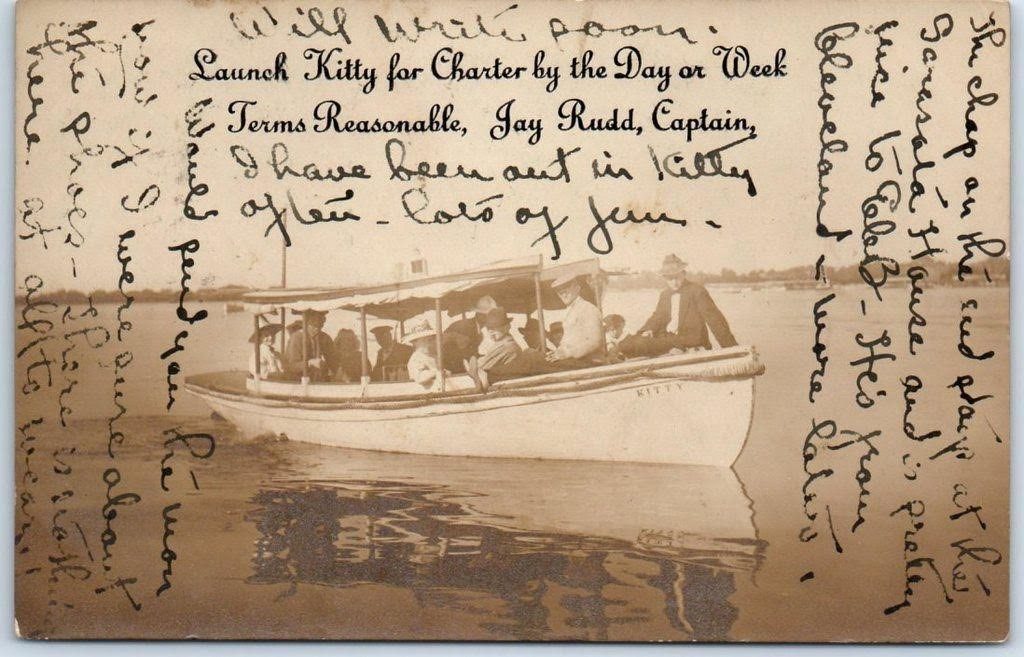 Will write soon.
Launch Kitty for Charter by the Day or Week
Terms Reasonable, Jay Rudd, Captain,
I have been out in Kitty
often - lots of fun.
KITTY
The chap on the end stays at the
Sarasota House and is pretty
nice to - He's from
Cleveland - more later.
Would send you the mon
now if I were sure about
the price - There is nothing
there at all to wear.